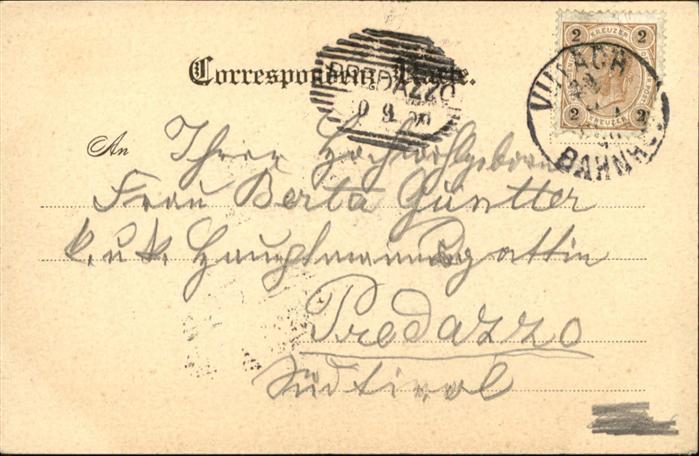 Correspondenz-Karte.
PREDAZZO
9 9
2 KREUZER 2
2 KREUZER 2
VILLACH
BAHNH
An Ihrer Hochwohlgeboren
Frau Berta Güntter
k. u. k. Hauptmannsgattin
Predazzo
Südtirol